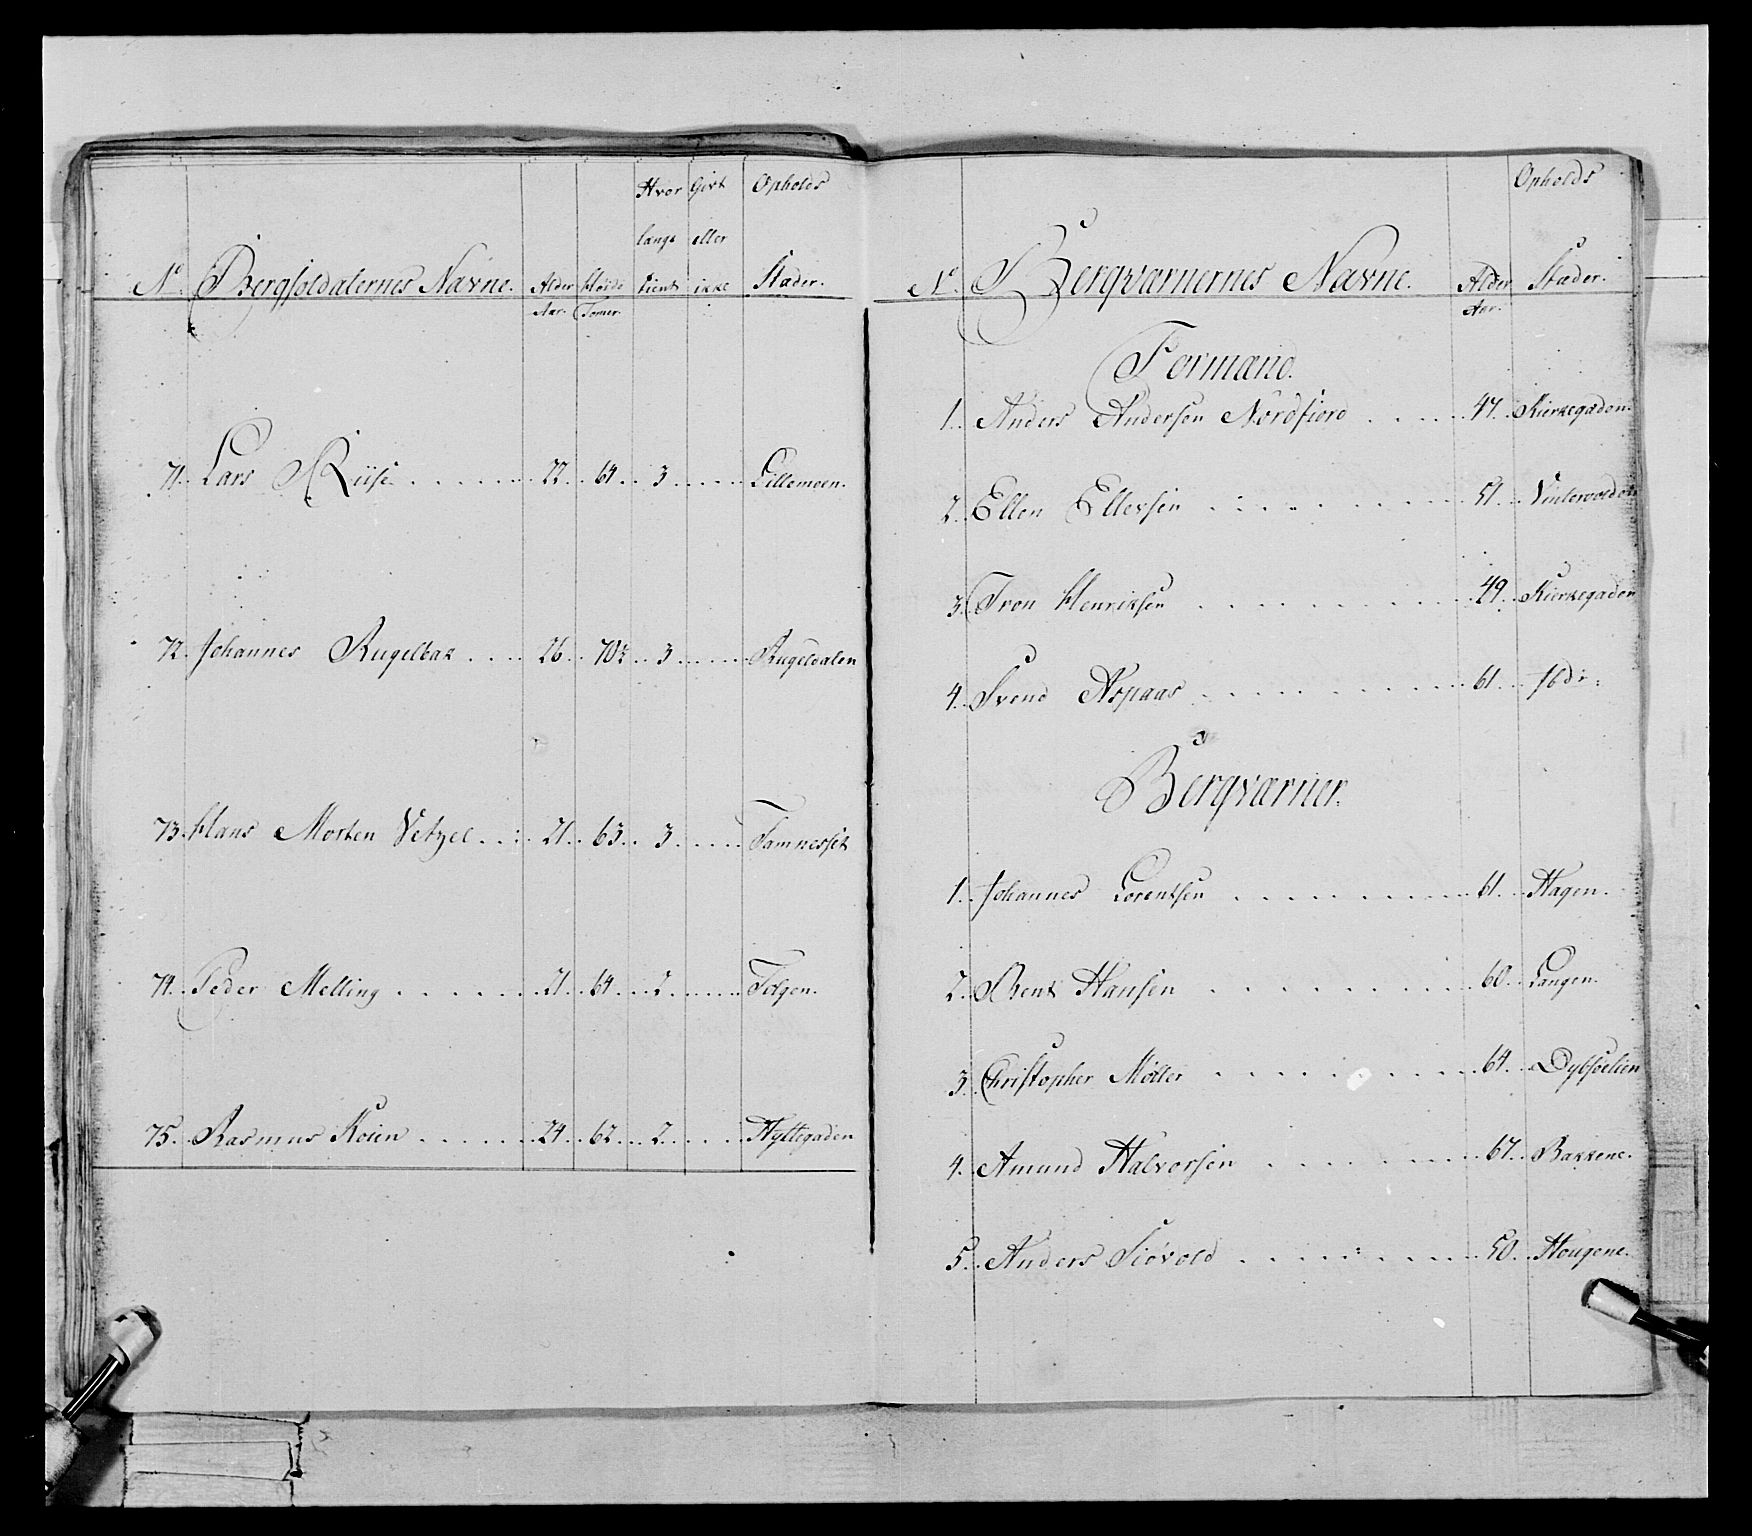 Hvor Givt Opholds
lange eller
No. Bergsoldaternes Navne. Alder Høide tient ikke Stæder.
Aar. Tomer.
71. Lars Riise 22. 64. 3. Lillemoen.
72. Johannes Rugelbak 26. 70½. 3. Rugeldalen
73. Hans Morten Vetzel 21. 63. 3. Tamnesset
74. Peder Melling 21. 64. 2. Tolgen.
75. Rasmus Koien 24. 62. 2. Hyttegaden
Opholds
No. Bergværnernes Navne. Alder Stæder.
Aar.
Formænd.
1. Anders Andersen Nordfiord 47. Kierkegaden.
2. Ellen Ellevsen 51. Vintervolden
3. Tron Henriksen 49. Kierkegaden
4. Svend Aspaas 61. Ibd:
Bergværner.
1. Johannes Lorentsen 61. Hagen.
2. Bent Hansen 60. Langen.
3. Christopher Møller 64. Dybsøelien
4. Amund Halvorsen 67. Bakkene.
5. Anders Siøvold 50. Hougene.